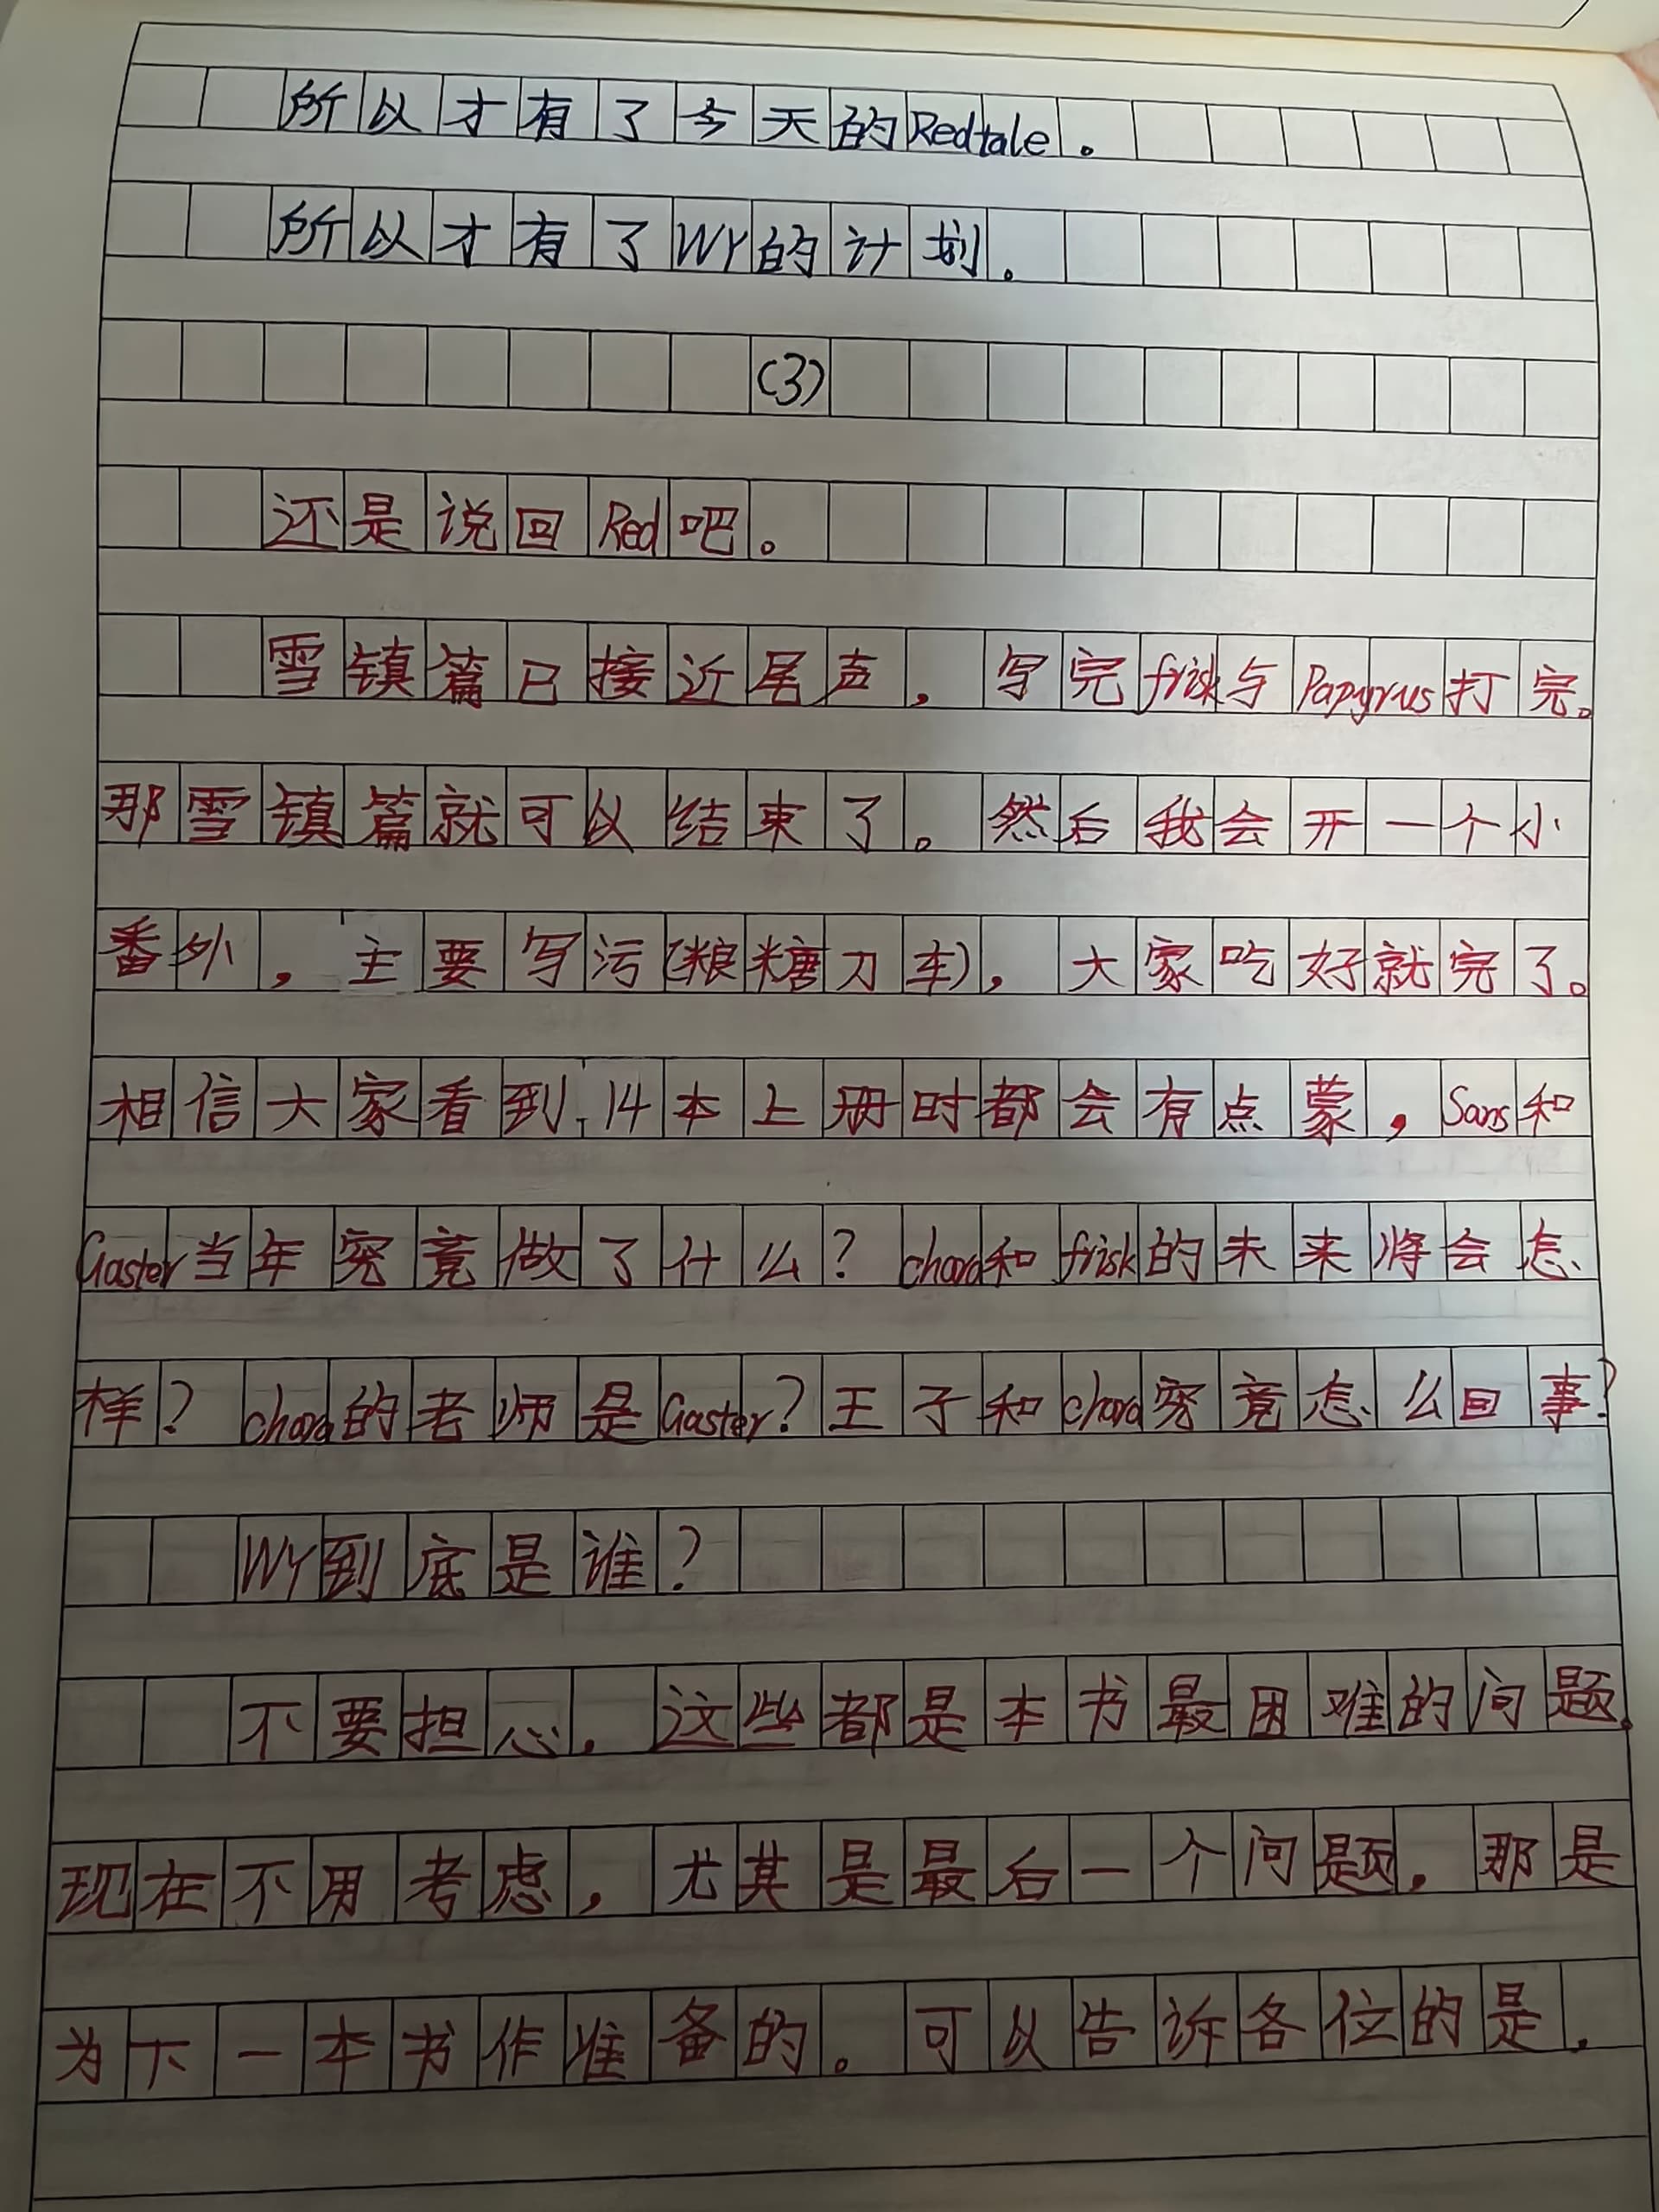 所以才有了今天的Redtale。
所以才有了WY的计划。
(3)
还是说回Red吧。
雪镇篇已接近尾声，写完frisk与Papyrus打完。
那雪镇篇就可以结束了。然后我会开一个小
番外，主要写污(粮糖刀车)，大家吃好就完了。
相信大家看到14本上册时都会有点蒙，Sans和
Gaster当年究竟做了什么？chara和frisk的未来将会怎
样？chara的老师是Gaster？王子和chara究竟怎么回事？
WY到底是谁？
不要担心，这些都是本书最困难的问题，
现在不用考虑，尤其是最后一个问题，那是
为下一本书作准备的。可以告诉各位的是，